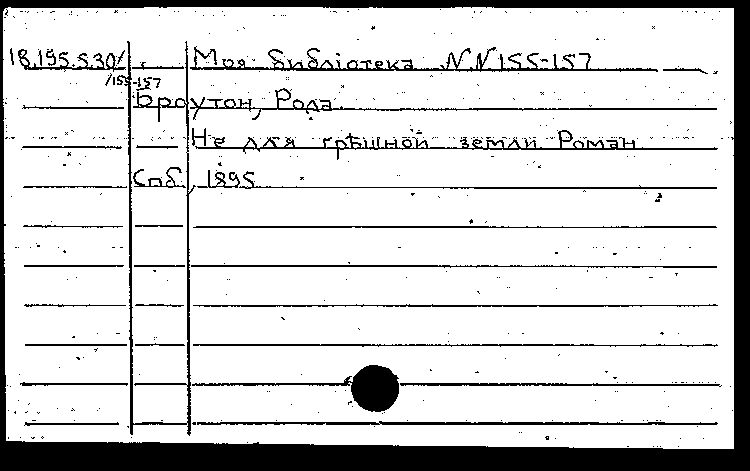 18.195.5.30/ Моя библіотека NN 155-157
/155-157
Броутон, Рода
Не для грѣшной земли Роман
Спб, 1895